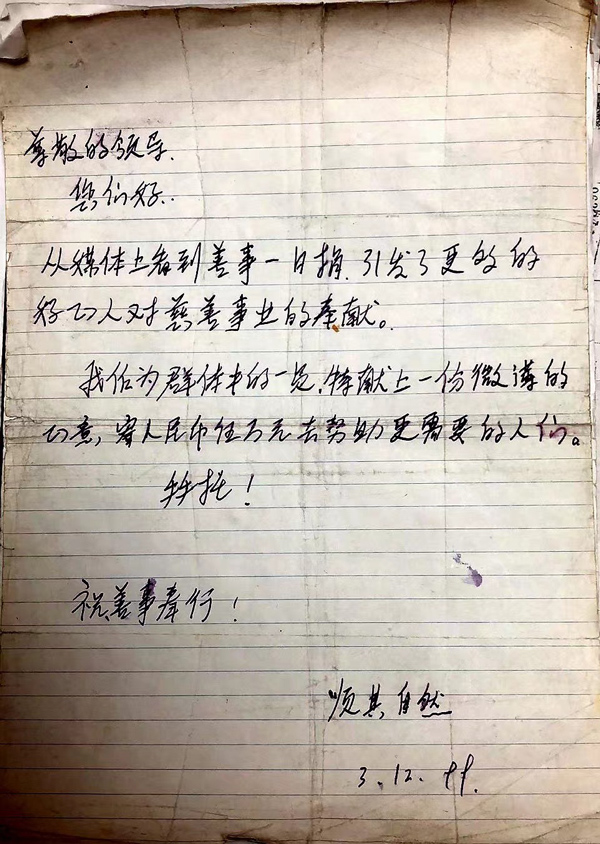 尊敬的领导.
您们好..
从媒体上看到善事一日捐,引发了更多的
好心人对慈善事业的奉献。
我作为群体中的一员,特献上一份微薄的
心意,寄人民币伍万元去帮助更需要的人们。
拜托!
祝善事奉行!
顺其自然
3.12.99.